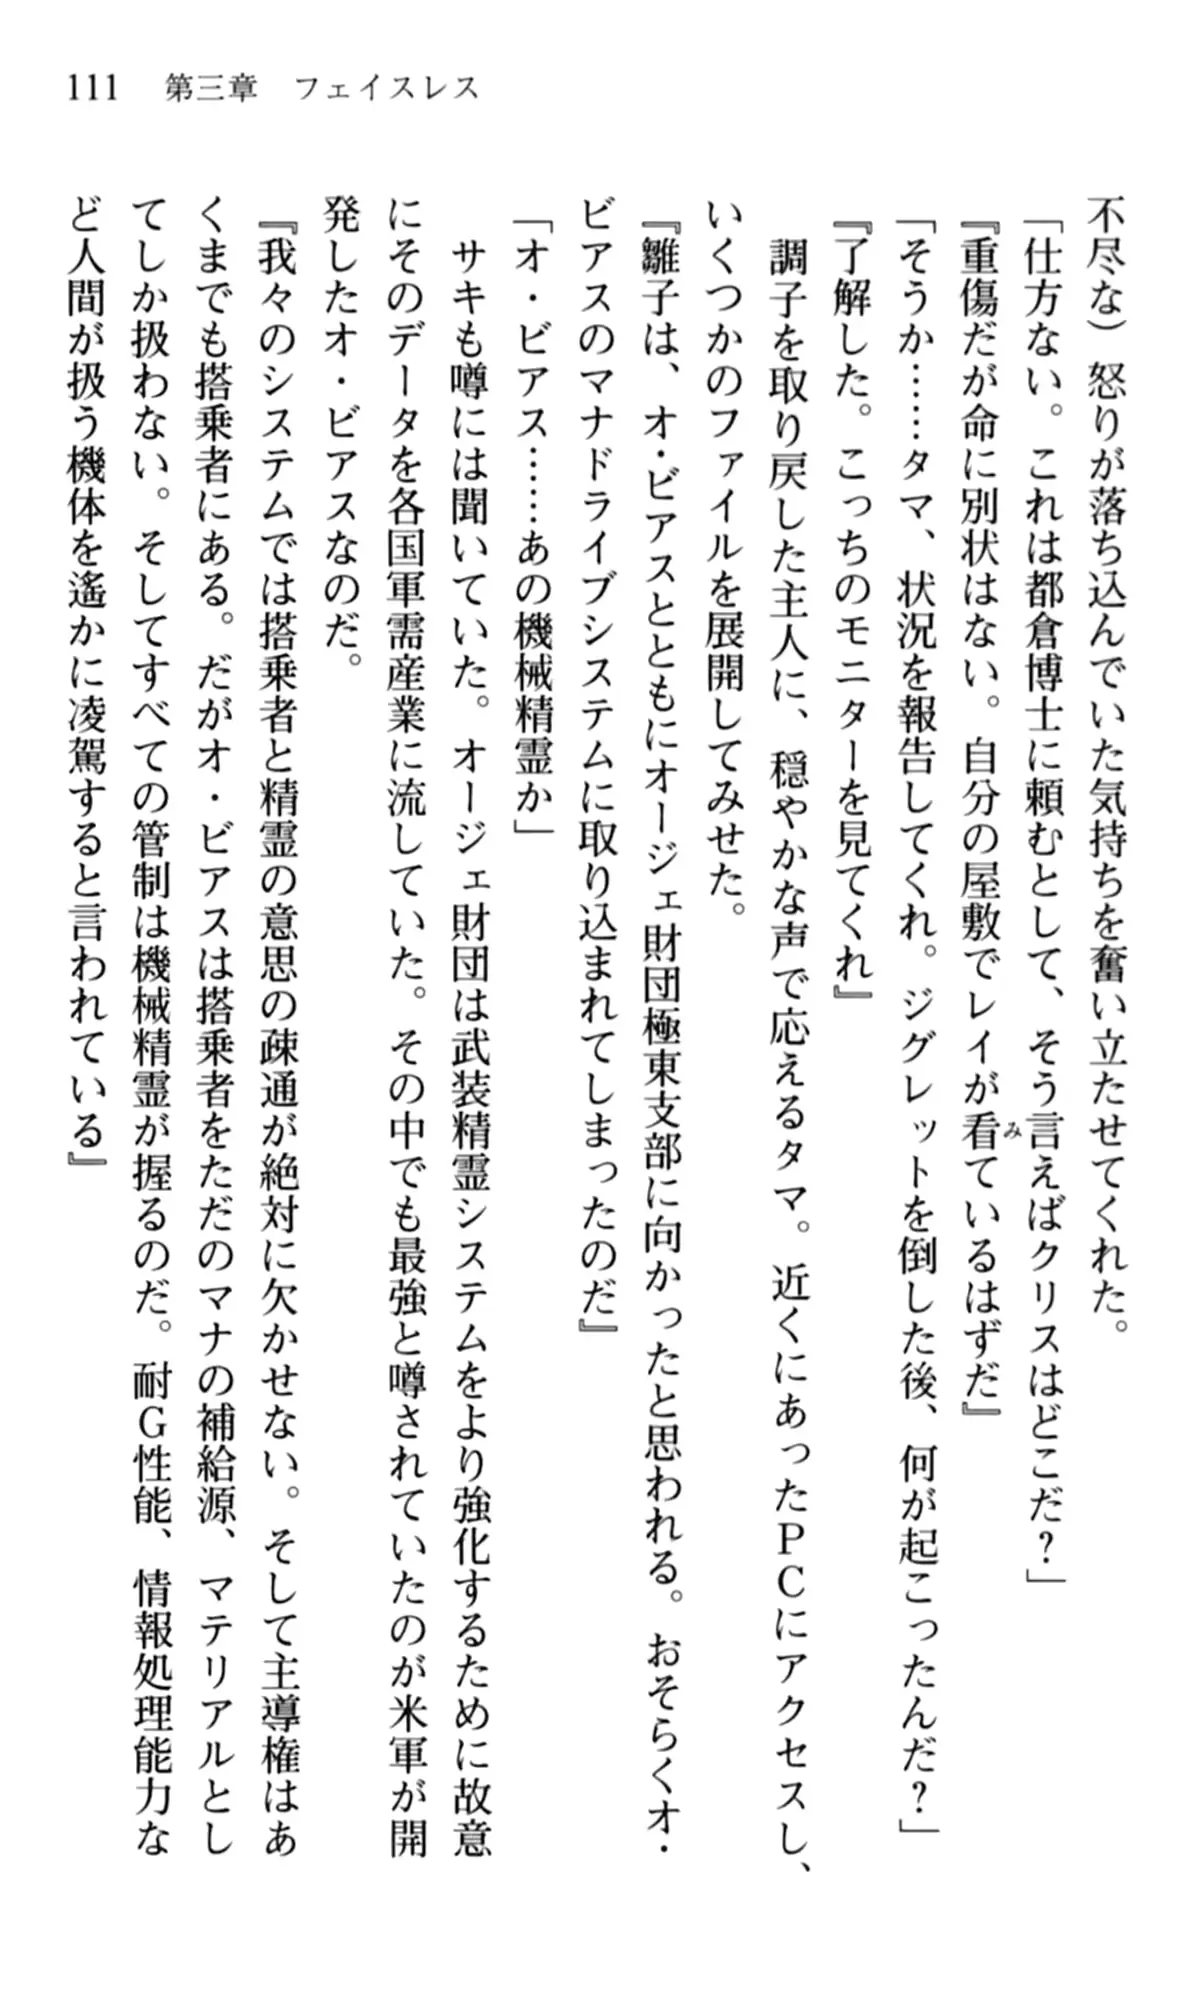 111　第三章　フェイスレス
不尽な）怒りが落ち込んでいた気持ちを奮い立たせてくれた。
「仕方ない。これは都倉博士に頼むとして、そう言えばクリスはどこだ？」
『重傷だが命に別状はない。自分の屋敷でレイが看ているはずだ』
み
「そうか……タマ、状況を報告してくれ。ジグレットを倒した後、何が起こったんだ？」
『了解した。こっちのモニターを見てくれ』
　調子を取り戻した主人に、穏やかな声で応えるタマ。近くにあったＰＣにアクセスし、
いくつかのファイルを展開してみせた。
『雛子は、オ・ビアスとともにオージェ財団極東支部に向かったと思われる。おそらくオ・
ビアスのマナドライブシステムに取り込まれてしまったのだ』
「オ・ビアス……あの機械精霊か」
　サキも噂には聞いていた。オージェ財団は武装精霊システムをより強化するために故意
にそのデータを各国軍需産業に流していた。その中でも最強と噂されていたのが米軍が開
発したオ・ビアスなのだ。
『我々のシステムでは搭乗者と精霊の意思の疎通が絶対に欠かせない。そして主導権はあ
くまでも搭乗者にある。だがオ・ビアスは搭乗者をただのマナの補給源、マテリアルとし
てしか扱わない。そしてすべての管制は機械精霊が握るのだ。耐Ｇ性能、情報処理能力な
ど人間が扱う機体を遙かに凌駕すると言われている』